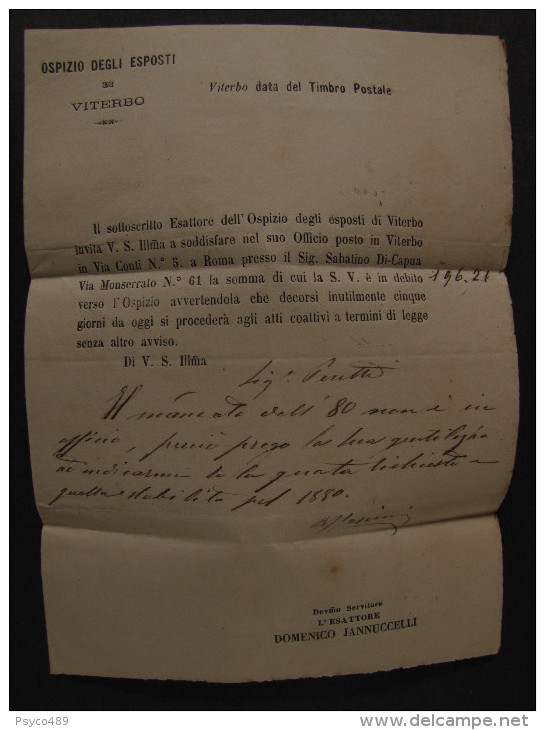 OSPIZIO DEGLI ESPOSTI
DI
VITERBO
Viterbo data del Timbro Postale
Il sottoscritto Esattore dell'Ospizio degli esposti di Viterbo
invita V. S. Illm̃a a soddisfare nel suo Officio posto in Viterbo
in Via Conti N.° 5. a Roma presso il Sig. Sabatino Di-Capua
Via Monserrato N.° 61 la somma di cui la S. V. è in debito 196.21
verso l'Ospizio avvertendola che decorsi inutilmente cinque
giorni da oggi si procederà agli atti coattivi a termini di legge
senza altro avviso.
Di V. S. Illm̃a
Sig.r Peretti
Il mancato dell' 80 non è in
officio, perciò prego la sua gentilezza
ad indicarmi se la quota richiesta è
quella stabilita pel 1880.
Devm̃o Servitore
L'ESATTORE
DOMENICO JANNUCCELLI
Psyco489
delcampe.net